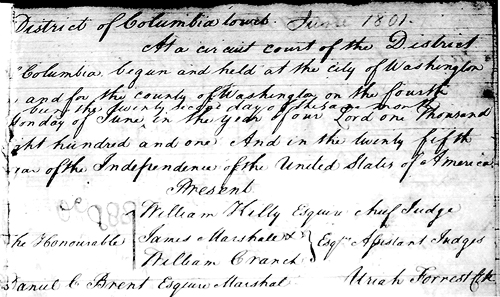 District of Columbia towit. June 1801.
At a circuit court of the District
Columbia begun and held at the city of Washington
and for the county of Washington on the fourth
being the twenty second day of the same month
Monday of June in the year of our Lord one Thousand
ght hundred and one And in the twenty fifth
ear of the Independence of the United States of America
Present
William Kilty Esquire Chief Judge
The Honourable
James Marshall &
William Cranch
Esqrs Assistant Judges
Daniel C Brent Esquire Marshal
Uriah Forrest Clk